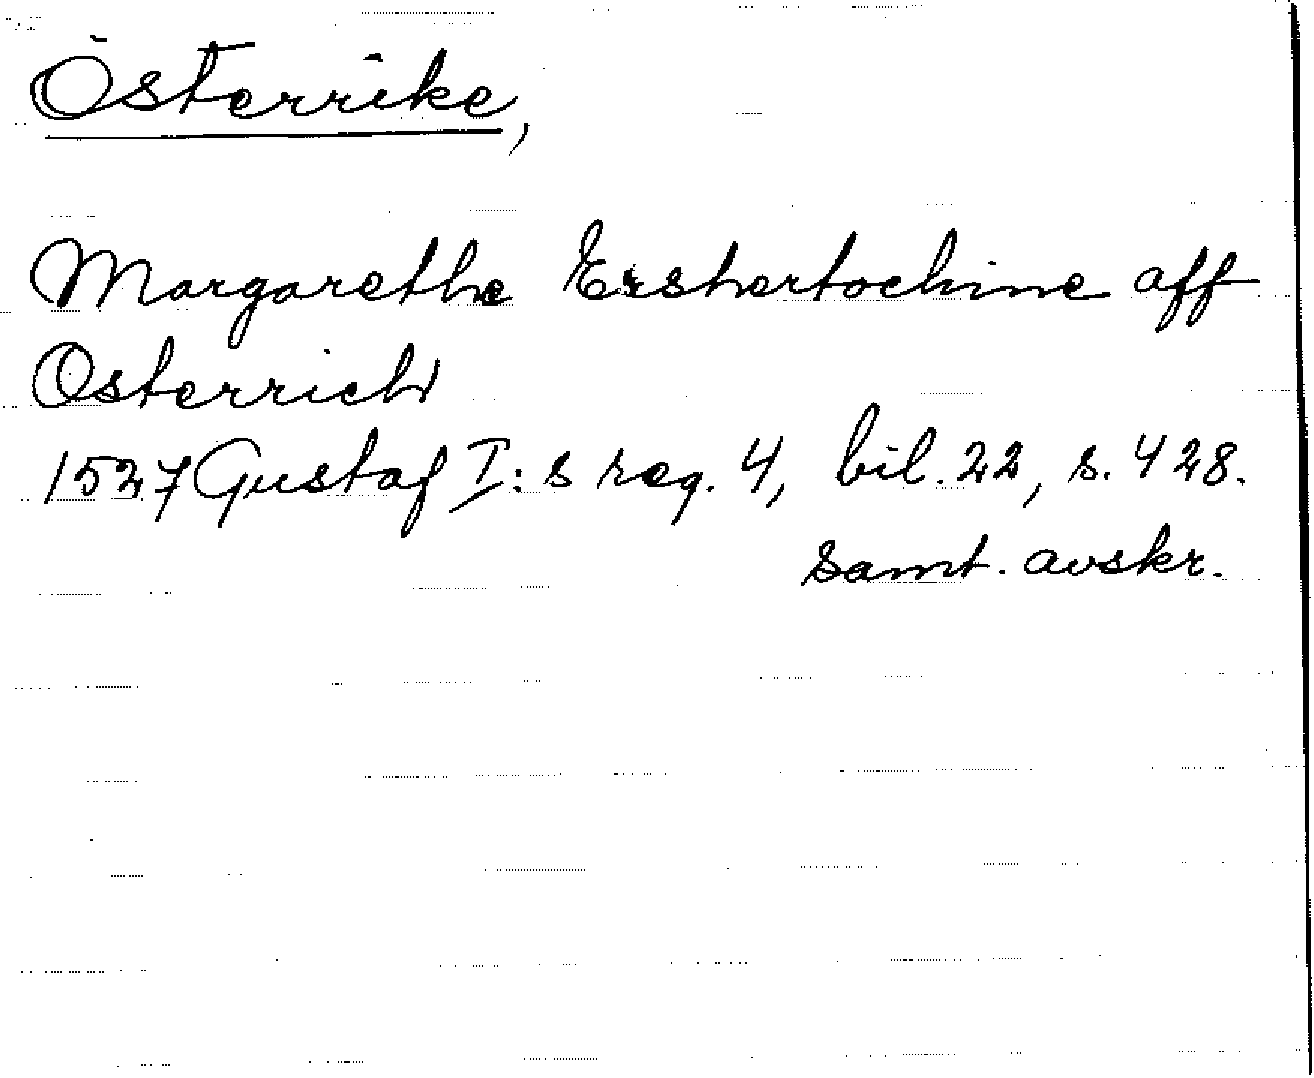 Österrike,
Margarethe Ershertochine aff
Osterrich
1527 Gustaf I:s reg. 4, bil. 22, s. 428.
samt. avskr.